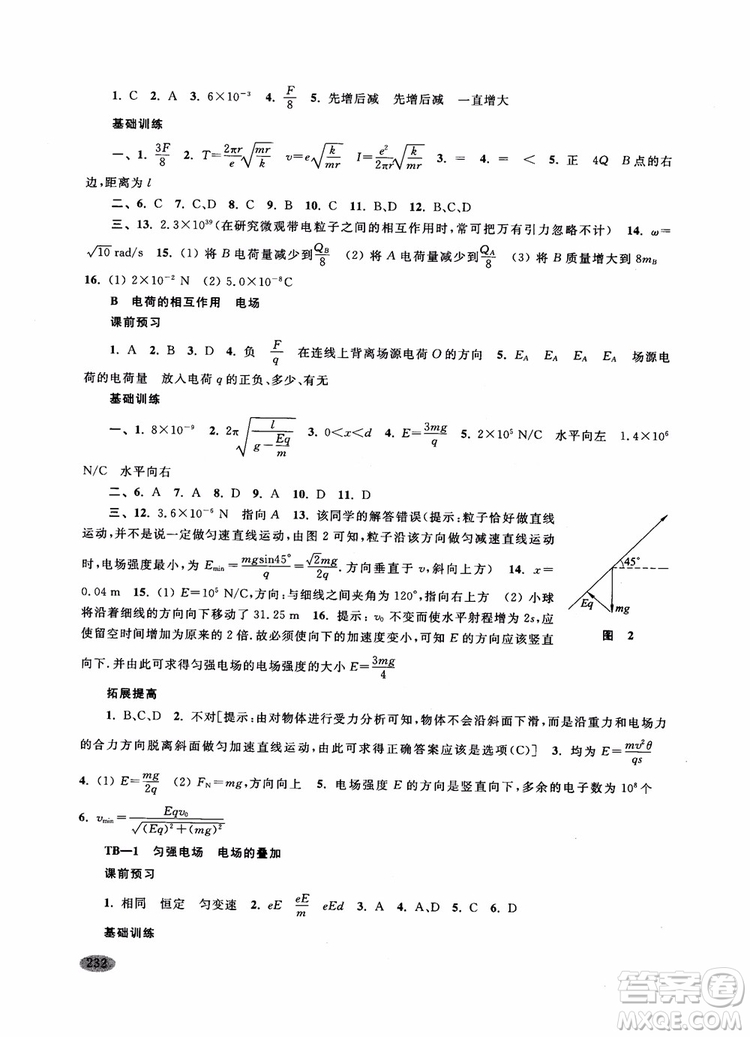 1. C 2. A 3. 6×10⁻³ 4. F/8 5. 先增后减 先增后减 一直增大
基础训练
一、1. 3F/8 2. T=2πr/e √(mr/k) v=e√(k/mr) I=e²/2πr √(k/mr) 3. = 4. = < 5. 正 4Q B点的右
边,距离为 l
二、6. C 7. C、D 8. C 9. C 10. C 11. A 12. B、C、D
三、13. 2.3×10³⁹(在研究微观带电粒子之间的相互作用时,常可把万有引力忽略不计) 14. ω=
√10 rad/s 15. (1) 将 B 电荷量减少到 Q_B/8 (2) 将 A 电荷量减少到 Q_A/8 (3) 将 B 质量增大到 8m_B
16. (1) 2×10⁻² N (2) 5.0×10⁻⁸C
B 电荷的相互作用 电场
课前预习
1. A 2. B 3. D 4. 负 F/q 在连线上背离场源电荷 O 的方向 5. E_A E_A E_A E_A 场源电
荷的电荷量 放入电荷 q 的正负、多少、有无
基础训练
一、1. 8×10⁻⁹ 2. 2π√(l/(g-Eq/m)) 3. 0<x<d 4. E=3mg/q 5. 2×10⁵ N/C 水平向左 1.4×10⁶
N/C 水平向右
二、6. A 7. A 8. D 9. D 10. D 11. D
三、12. 3.6×10⁻⁶ N 指向 A 13. 该同学的解答错误(提示:粒子恰好做直线
运动,并不是说一定做匀速直线运动,由图 2 可知,粒子沿该方向做匀减速直线运动
时,电场强度最小,为 E_min=mgsin45°/q=√2mg/2q.方向垂直于 v,斜向上方) 14. x=
0.04 m 15. (1) E=10⁵ N/C,方向:与细线之间夹角为 120°,指向右上方 (2) 小球
将沿着细线的方向下移动了 31.25 m 16. 提示:v₀ 不变而使水平射程增为 2s,应
使留空时间增加为原来的 2 倍.故必须使下落的加速度变小,可知 E 的方向应该竖直
向下.并由此可求得匀强电场的电场强度的大小 E=3mg/4
45°
Eq
mg
图 2
拓展提高
1. B、C、D 2. 不对[提示:由对物体进行受力分析可知,物体不会沿斜面下滑,而是沿重力和电场力
的合力方向脱离斜面做匀加速直线运动,由此可求得正确答案应该是选项(C)] 3. mv²θ/qs
4. (1) E=mg/2q (2) F_N=mg,方向向上 5. 电场强度 E 的方向是竖直向下,多余的电子数为 10⁸ 个
6. v_min=Eqv₀/√((Eq)²+(mg)²)
TB—1 匀强电场 电场的叠加
课前预习
1. 相同 恒定 匀变速 2. eE eE/m eEd 3. A 4. A、C、D 5. C 6. D
基础训练
232
答案圈
MXQE.COM